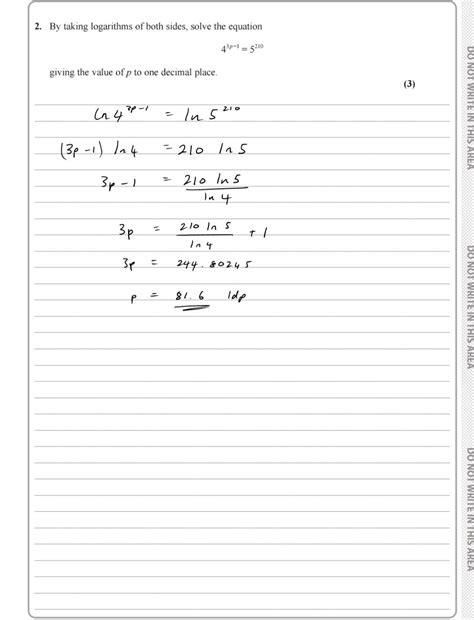 2. By taking logarithms of both sides, solve the equation
4³ᵖ⁻¹ = 5²¹⁰
giving the value of p to one decimal place.
(3)
ln 4³ᵖ⁻¹ = ln 5²¹⁰
(3p-1) ln 4 = 210 ln 5
3p - 1 = 210 ln 5 / ln 4
3p = 210 ln 5 / ln 4 + 1
3p = 244.80245
p = 81.6 1dp
DO NOT WRITE IN THIS AREA
DO NOT WRITE IN THIS AREA
DO NOT WRITE IN THIS AREA